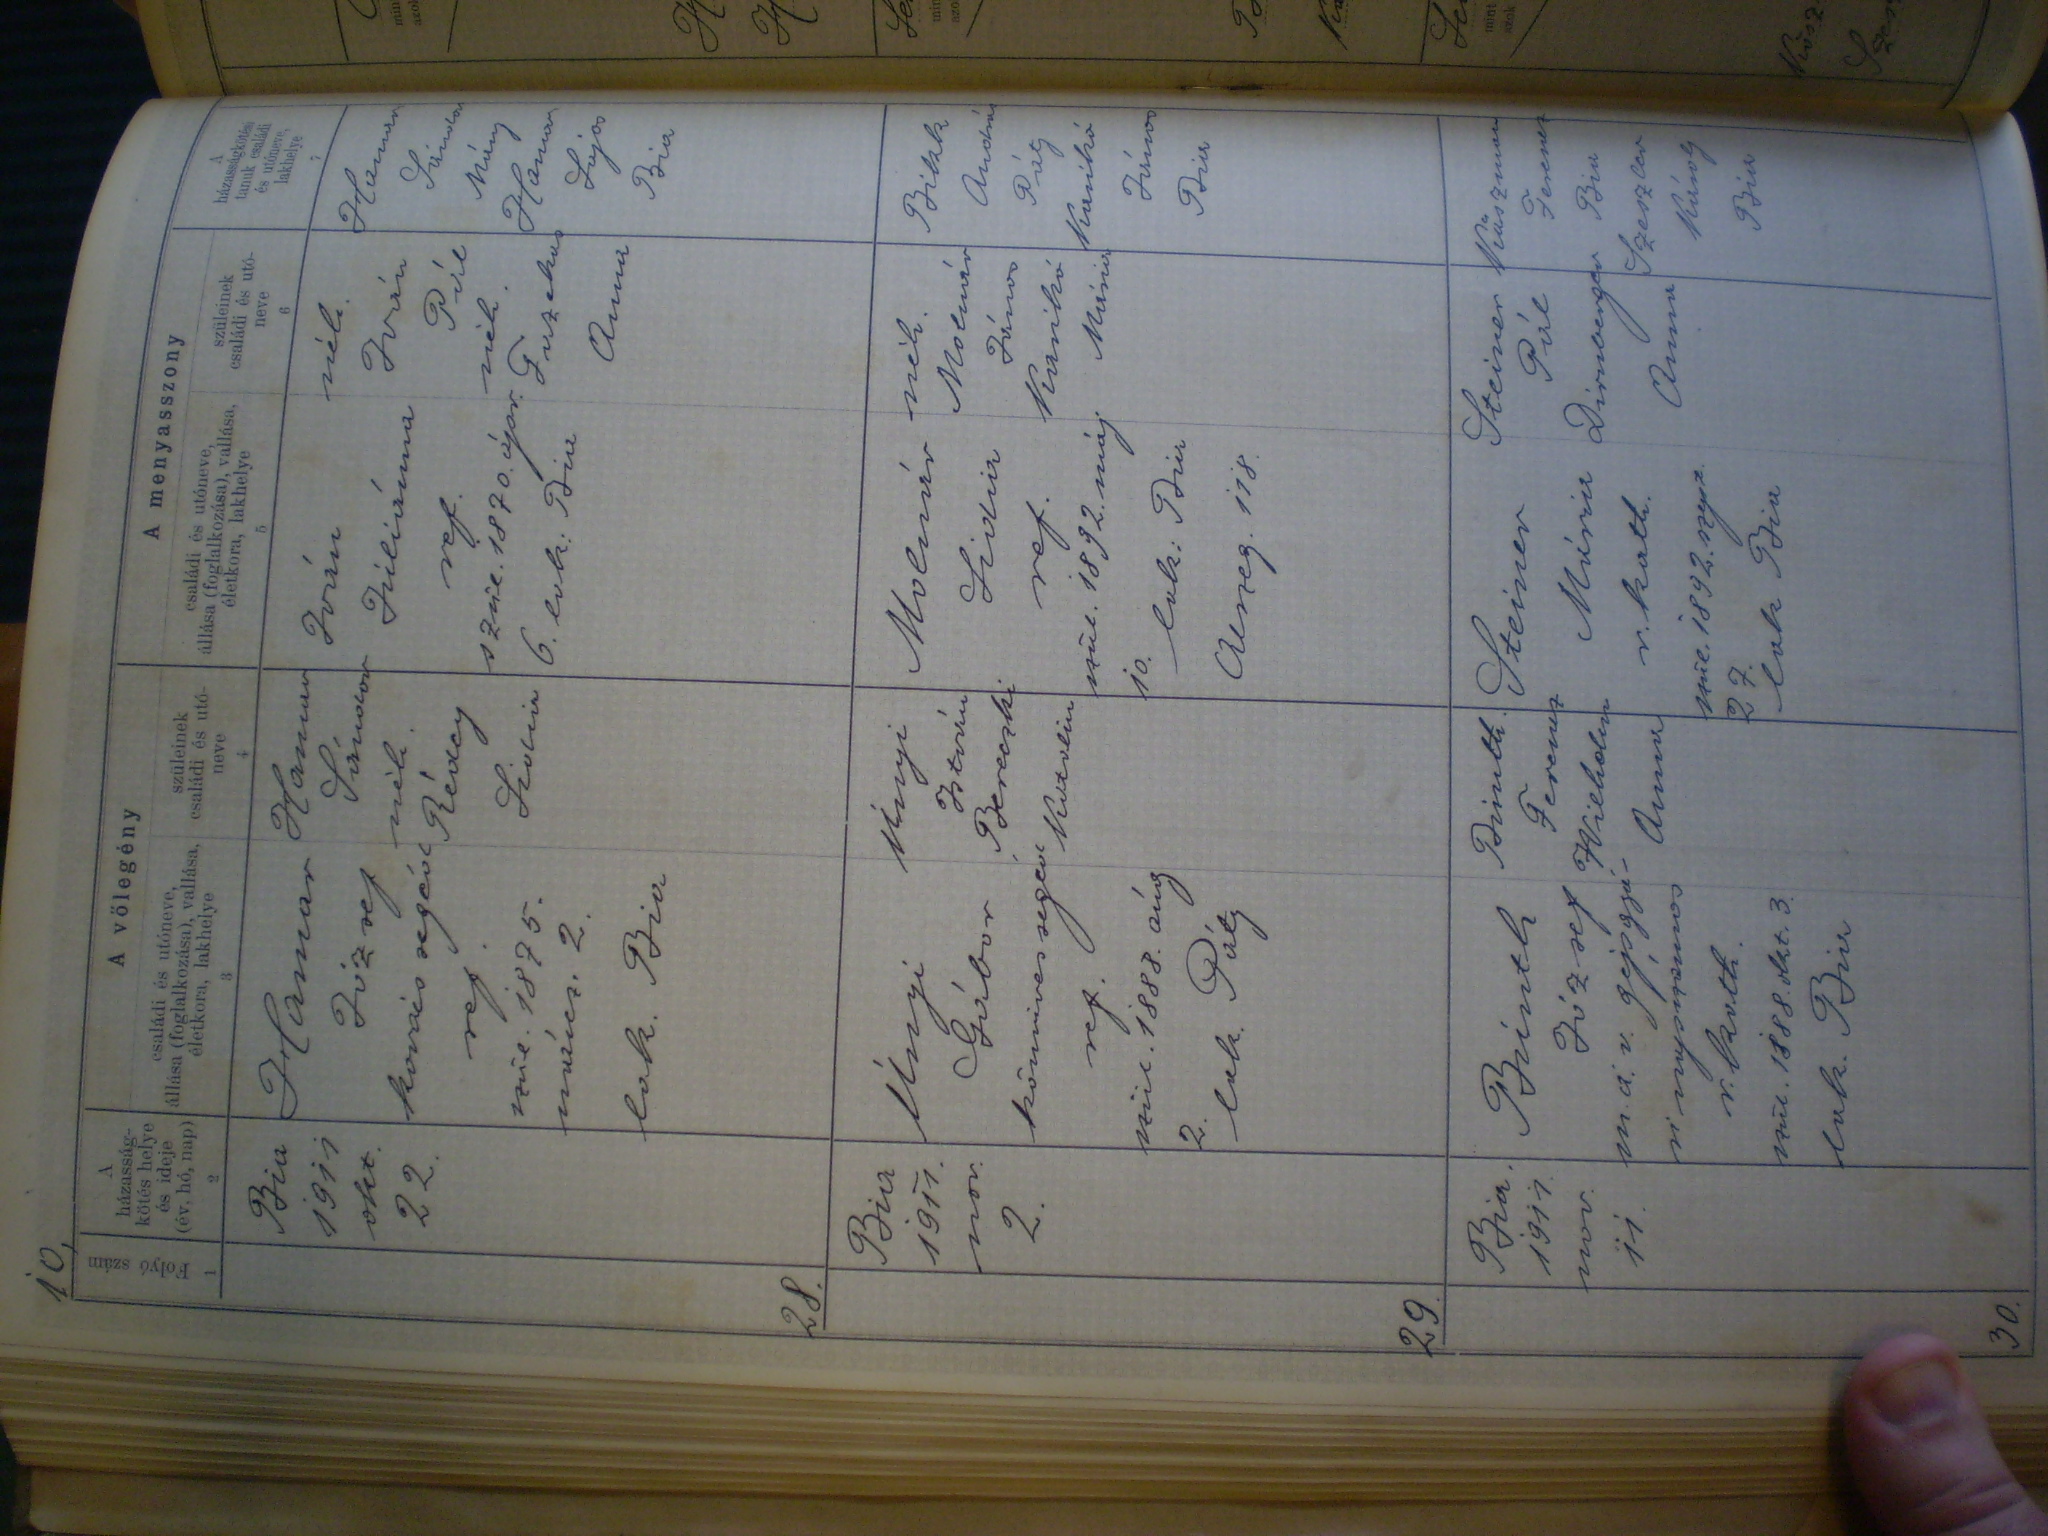 10,
Folyó szám
1
A
házasság-
kötés helye
és ideje
(év, hó, nap)
2
A vőlegény
családi és utóneve,
állása (foglalkozása), vallása,
életkora, lakhelye
3
szüleinek
családi és utó-
neve
4
A menyasszony
családi és utóneve,
állása (foglalkozása), vallása,
életkora, lakhelye
5
szüleinek
családi és utó-
neve
6
A
házasságkötési
tanuk családi
és utóneve,
lakhelye
7
28.
Bia
1911
okt.
22.
Hamar
József
kovács segéd
ref.
szül. 1875.
márcz. 2.
lak. Bia
Hamar
Sándor
néh.
Rédey
Lidia
Iván
Juliánna
ref.
szül. 1870. ápr.
6. lak: Bia
néh.
Iván
Pál
néh.
Fuzekas
Anna
Hamar
Sándor
Mány
Hamar
Lajos
Bia
29.
Bia
1911.
nov.
2.
Únyi
Gábor
kőmíves segéd
ref.
szül. 1888. aug
2.
lak. Páty
Únyi
István
Bereczki
Katalin
Molnár
Lidia
ref.
szül. 1892. máj
10.
lak: Bia
Alszeg. 118.
néh.
Molnár
János
Karikó
Mária
Bikk
András
Páty
Karikó
János
Bia
30.
Bia.
1911.
nov.
11.
Binth
József
m. á. v. gépgyá-
ri
r. kath.
szül. 1888. okt. 3.
lak. Bia
Binth.
Ferencz
Anna
Steiner
Mária
r. kath.
szül. 1892. szept.
27.
lak Bia
Steiner
Pál
Dirnberger
Anna
Ferencz
Bia
Szeszler
Károly
Bia